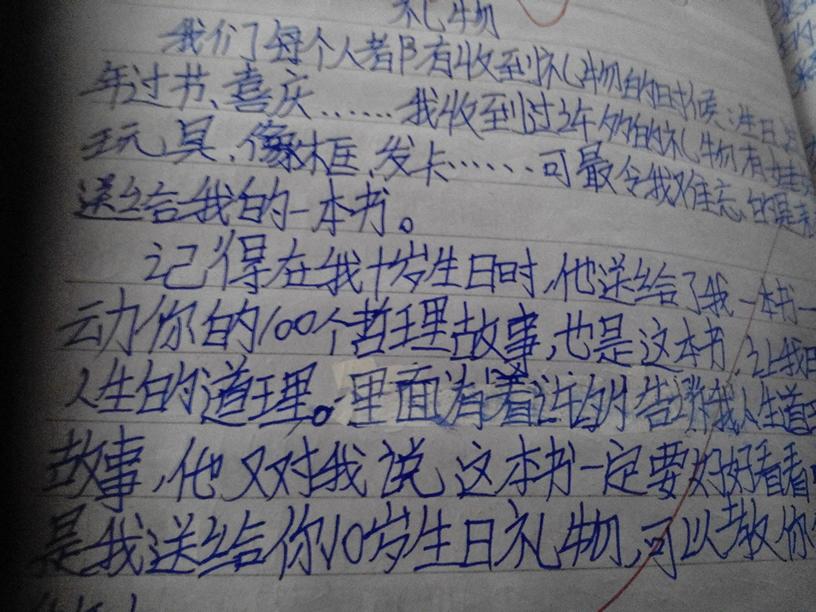 礼物
我们每个人都有收到礼物的时候:生日、过
年过节、喜庆……我收到过许多的礼物有娃
玩具、像框、发卡……可最令我难忘的是
送给我的一本书。
记得在我十岁生日时,他送给了我一本书一
动你的100个哲理故事,也是这本书,让我
人生的道理。里面有着许多的告诉我人生道
故事,他又对我说,这本书一定要好好看看
是我送给你10岁生日礼物,可以教你